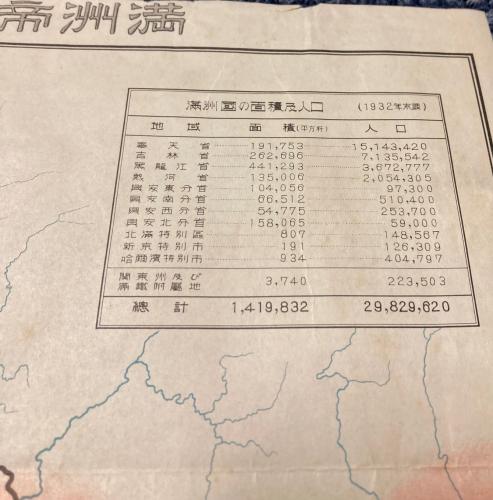 満洲帝
満洲國の面積及人口 (1932年末調)
地域 面積(平方粁) 人口
奉天省 191,753 15,143,420
吉林省 262,696 7,135,542
黑龍江省 441,293 3,672,777
熱河省 135,006 2,054,305
興安東分省 104,056 97,300
興安南分省 66,512 510,400
興安西分省 54,775 253,700
興安北分省 158,065 59,000
北滿特別區 807 148,567
新京特別市 191 126,309
哈爾濱特別市 934 404,797
関東州及び
滿鐵附屬地 3,740 223,503
總計 1,419,832 29,829,620